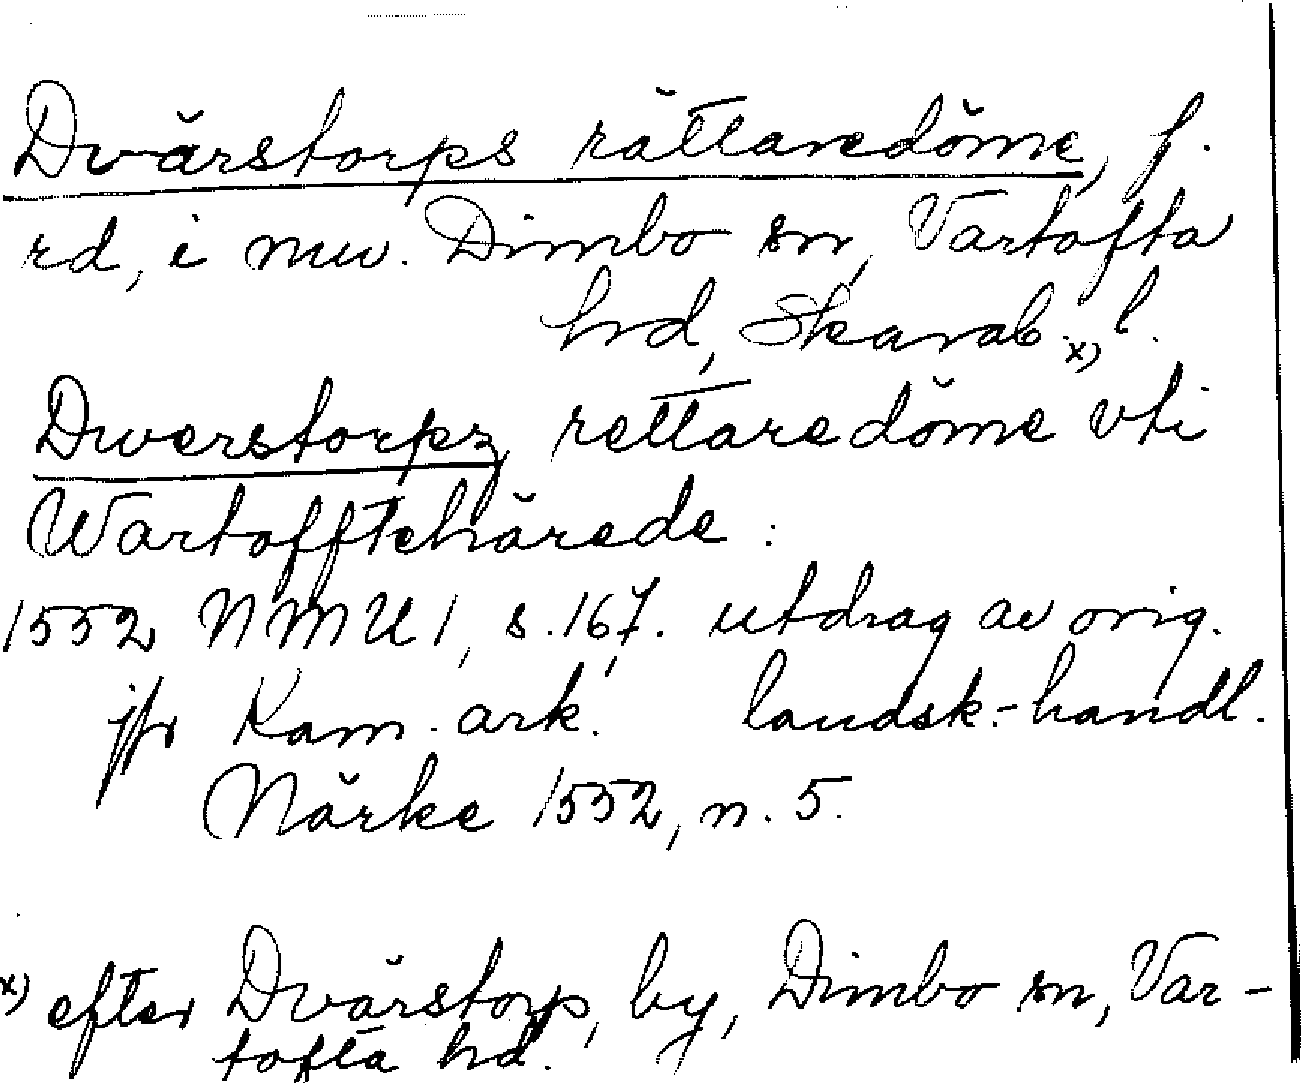 Dvärstorps rättaredöme, f.
rd, i nuv. Dimbo sn, Vartofta
hrd, Skarab. l. x)
Dwerstorpz rettaredöme vti
Wartofftehärede :
1552 NMU 1, s. 167. utdrag av orig.
jfr Kam. ark. landsk.-handl.
Närke 1552, n. 5.
x) efter Dvärstorp, by, Dimbo sn, Var-
tofta hd.